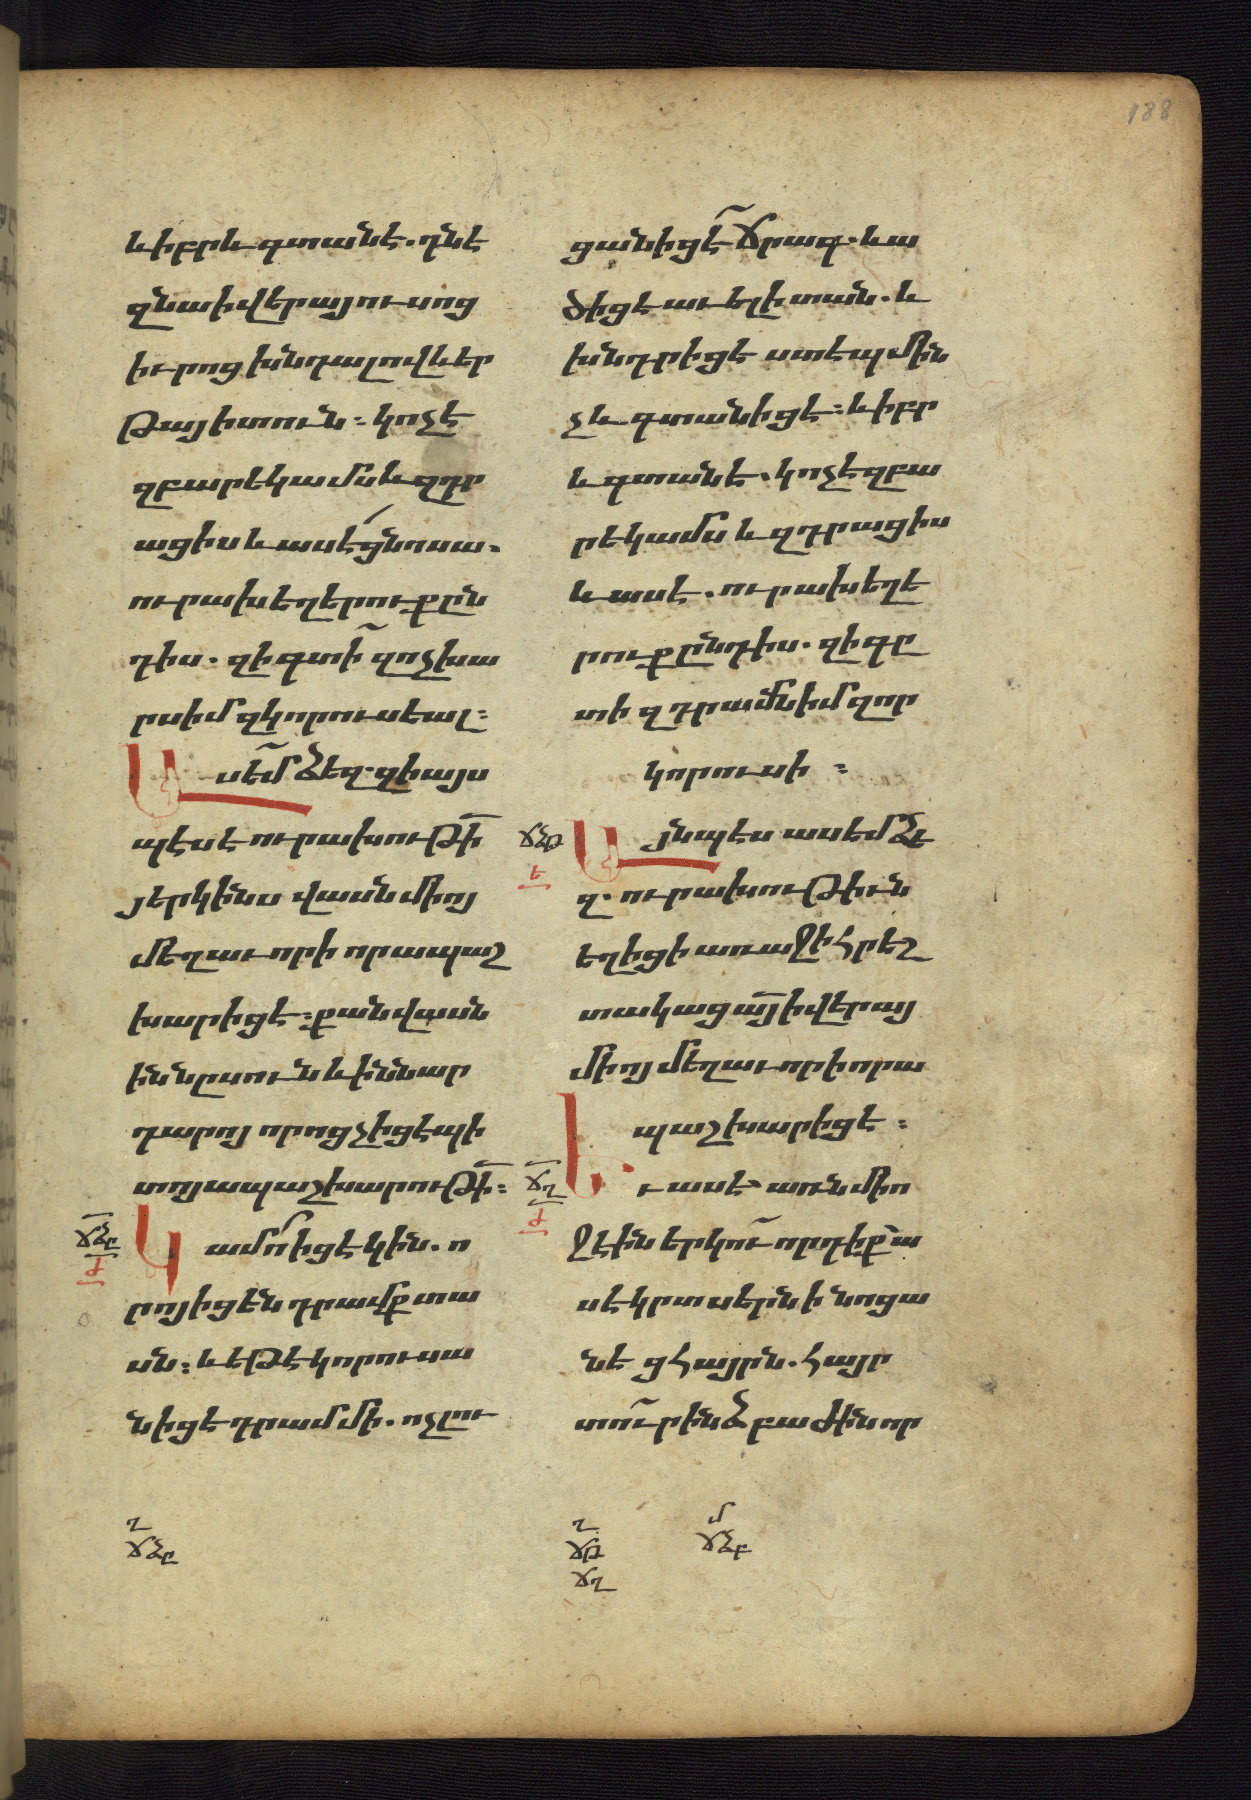 188
և իբրև գտանէ. դնէ
զնա ի վերայ ուսոց
իւրոց խնդալով և եր
թայ ի տուն։ կոչէ
զբարեկամսն և զդր
ացիս և ասէ ցնոսա.
ուրախ եղերուք ըն
դիս. զի գտի զոչխա
րս իմ զկորուսեալ։
Ասեմ ձեզ. զի այս
պէս է ուրախութի
յերկինս վասն միոյ
մեղաւորի որ ապաշ
խարիցէ։ քան վասն
իննըսուն և իննար
դարոյ որոց չիցէ պի
տոյ ապաշխարութի։
ՃՁԸ
Ժ
Կամ ո՛ իցէ կին. ո
րոյ իցեն դրամք տա
սն։ և եթէ կորուսա
նիցէ դրամ մի. ոչ լու
ցանիցէ ճրագ. և ա
ծիցէ աւելի տան. և
խնդրիցէ ստէպ մին
չև գտանիցէ։ և իբր
և գտանէ. կոչէ զբա
րեկամս և զդրացիս
և ասէ. ուրախ եղե
րուք ընդիս. զի գը
տի զդրամն իմ զոր
կորուսի։
ՃՁԹ
Ե
Այնպէս ասեմ ձե
զ. ուրախութիւն
եղիցի առաջի հրեշ
տակաց այ ի վերայ
միոյ մեղաւորի որ ա
պաշխարիցէ։
ՃՂ
Ժ
Եւ ասէ առն միո
ջ էին երկու որդիք ա
սէ կրտսելին ի նոցա
նէ ցհայրն. հայր
տուր ինձ բաժին որ
Ղ
ՃՁԸ
Ղ
ՃՁԹ
ՃՂ
Մ
ՃՁԲ